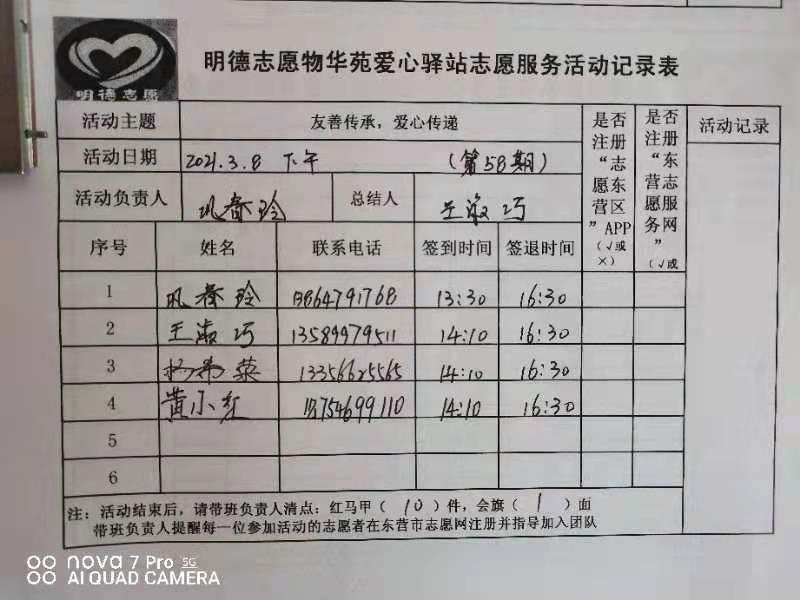 明德志愿
明德志愿物华苑爱心驿站志愿服务活动记录表
活动主题 友善传承，爱心传递 是否注册“志愿东营区”APP（√或×） 是否注册“东营志愿服务网”（√或 活动记录
活动日期 2021.3.8 下午 （第58期）
活动负责人 巩春玲 总结人 王淑巧
序号 姓名 联系电话 签到时间 签退时间
1 巩春玲 13:30 16:30
2 王淑巧 13589979511 14:10 16:30
3 13356625565 14:10 16:30
4 黄小红 14:10 16:30
5
6
注：活动结束后，请带班负责人清点：红马甲（10）件，会旗（1）面
带班负责人提醒每一位参加活动的志愿者在东营市志愿网注册并指导加入团队
nova 7 Pro 5G
AI QUAD CAMERA